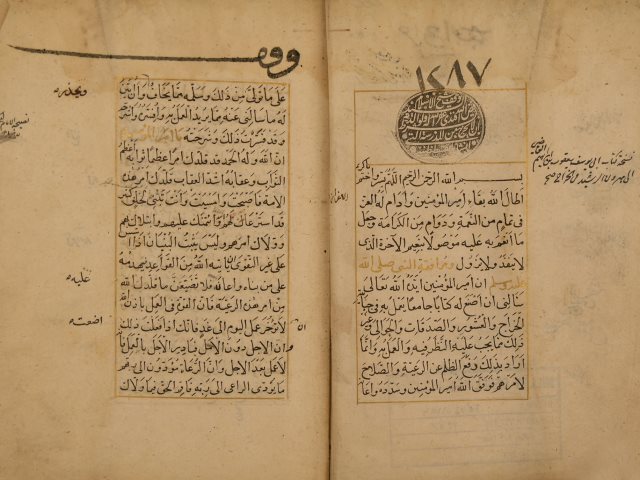 ١٢٨٧
بسم الله الرحمن الرحيم اللهم يسر واختم
اطال الله بقاء امير المؤمنين وادام له العز
في تمام من النعمة ودوام من الكرامة وجعل
ما انعم به عليه موصولا بنعيم الآخرة الذى
لا ينفد ولا يزول ومرافقة النبى صلى الله
عليه وسلم ان امير المؤمنين ايده الله تعالى
سالنى ان اضع له كتابا جامعا يعمل به فى جباية
الخراج والعشور والصدقات والجوالى وغير
ذلك مما يجب عليه النظر فيه والعمل به وانما
اراد بذلك رفع الظلم عن الرعية والصلاح
لامرهم فوفق الله امير المؤمنين وسدده واعا
نسخة كتاب ابى يوسف يعقوب بن ابرهيم القاضى
الى هرون الرشيد
وقف
على ما تولى من ذلك وسلمه مما يخاف وان ابين
له ما سالنى عنه مما يريد العمل به وافسره واشرحه
وقد فسرت ذلك وشرحته يا امير المؤمنين
ان الله وله الحمد قد قلدك امرا عظيما ثوابه اعظم
الثواب وعقابه اشد العقاب قلدك امر هذه
الامة فاصبحت وامسيت وانت تبنى لخلق كثير
قد استرعاكهم الله وائتمنك عليهم وابتلاك بهم
وولاك امرهم وليس يلبث البنيان اذا اسس
على غير التقوى ان ياتيه الله من القواعد فيهدمه
على من بناه واعان عليه فلا تضيعن ما قلدك الله
من امر هذه الرعية فان القوة فى العمل باذن الله
لا تؤخر عمل اليوم الى غد فانك اذا فعلت ذلك
ان الاجل دون الامل فبادر الاجل بالعمل فانه
لا عمل بعد الاجل وان الرعاة مؤدون الى ربهم
ما يؤدى الراعى الى ربه فاقم الحق فيما ولاك
ويحذره
عليه
اضعت